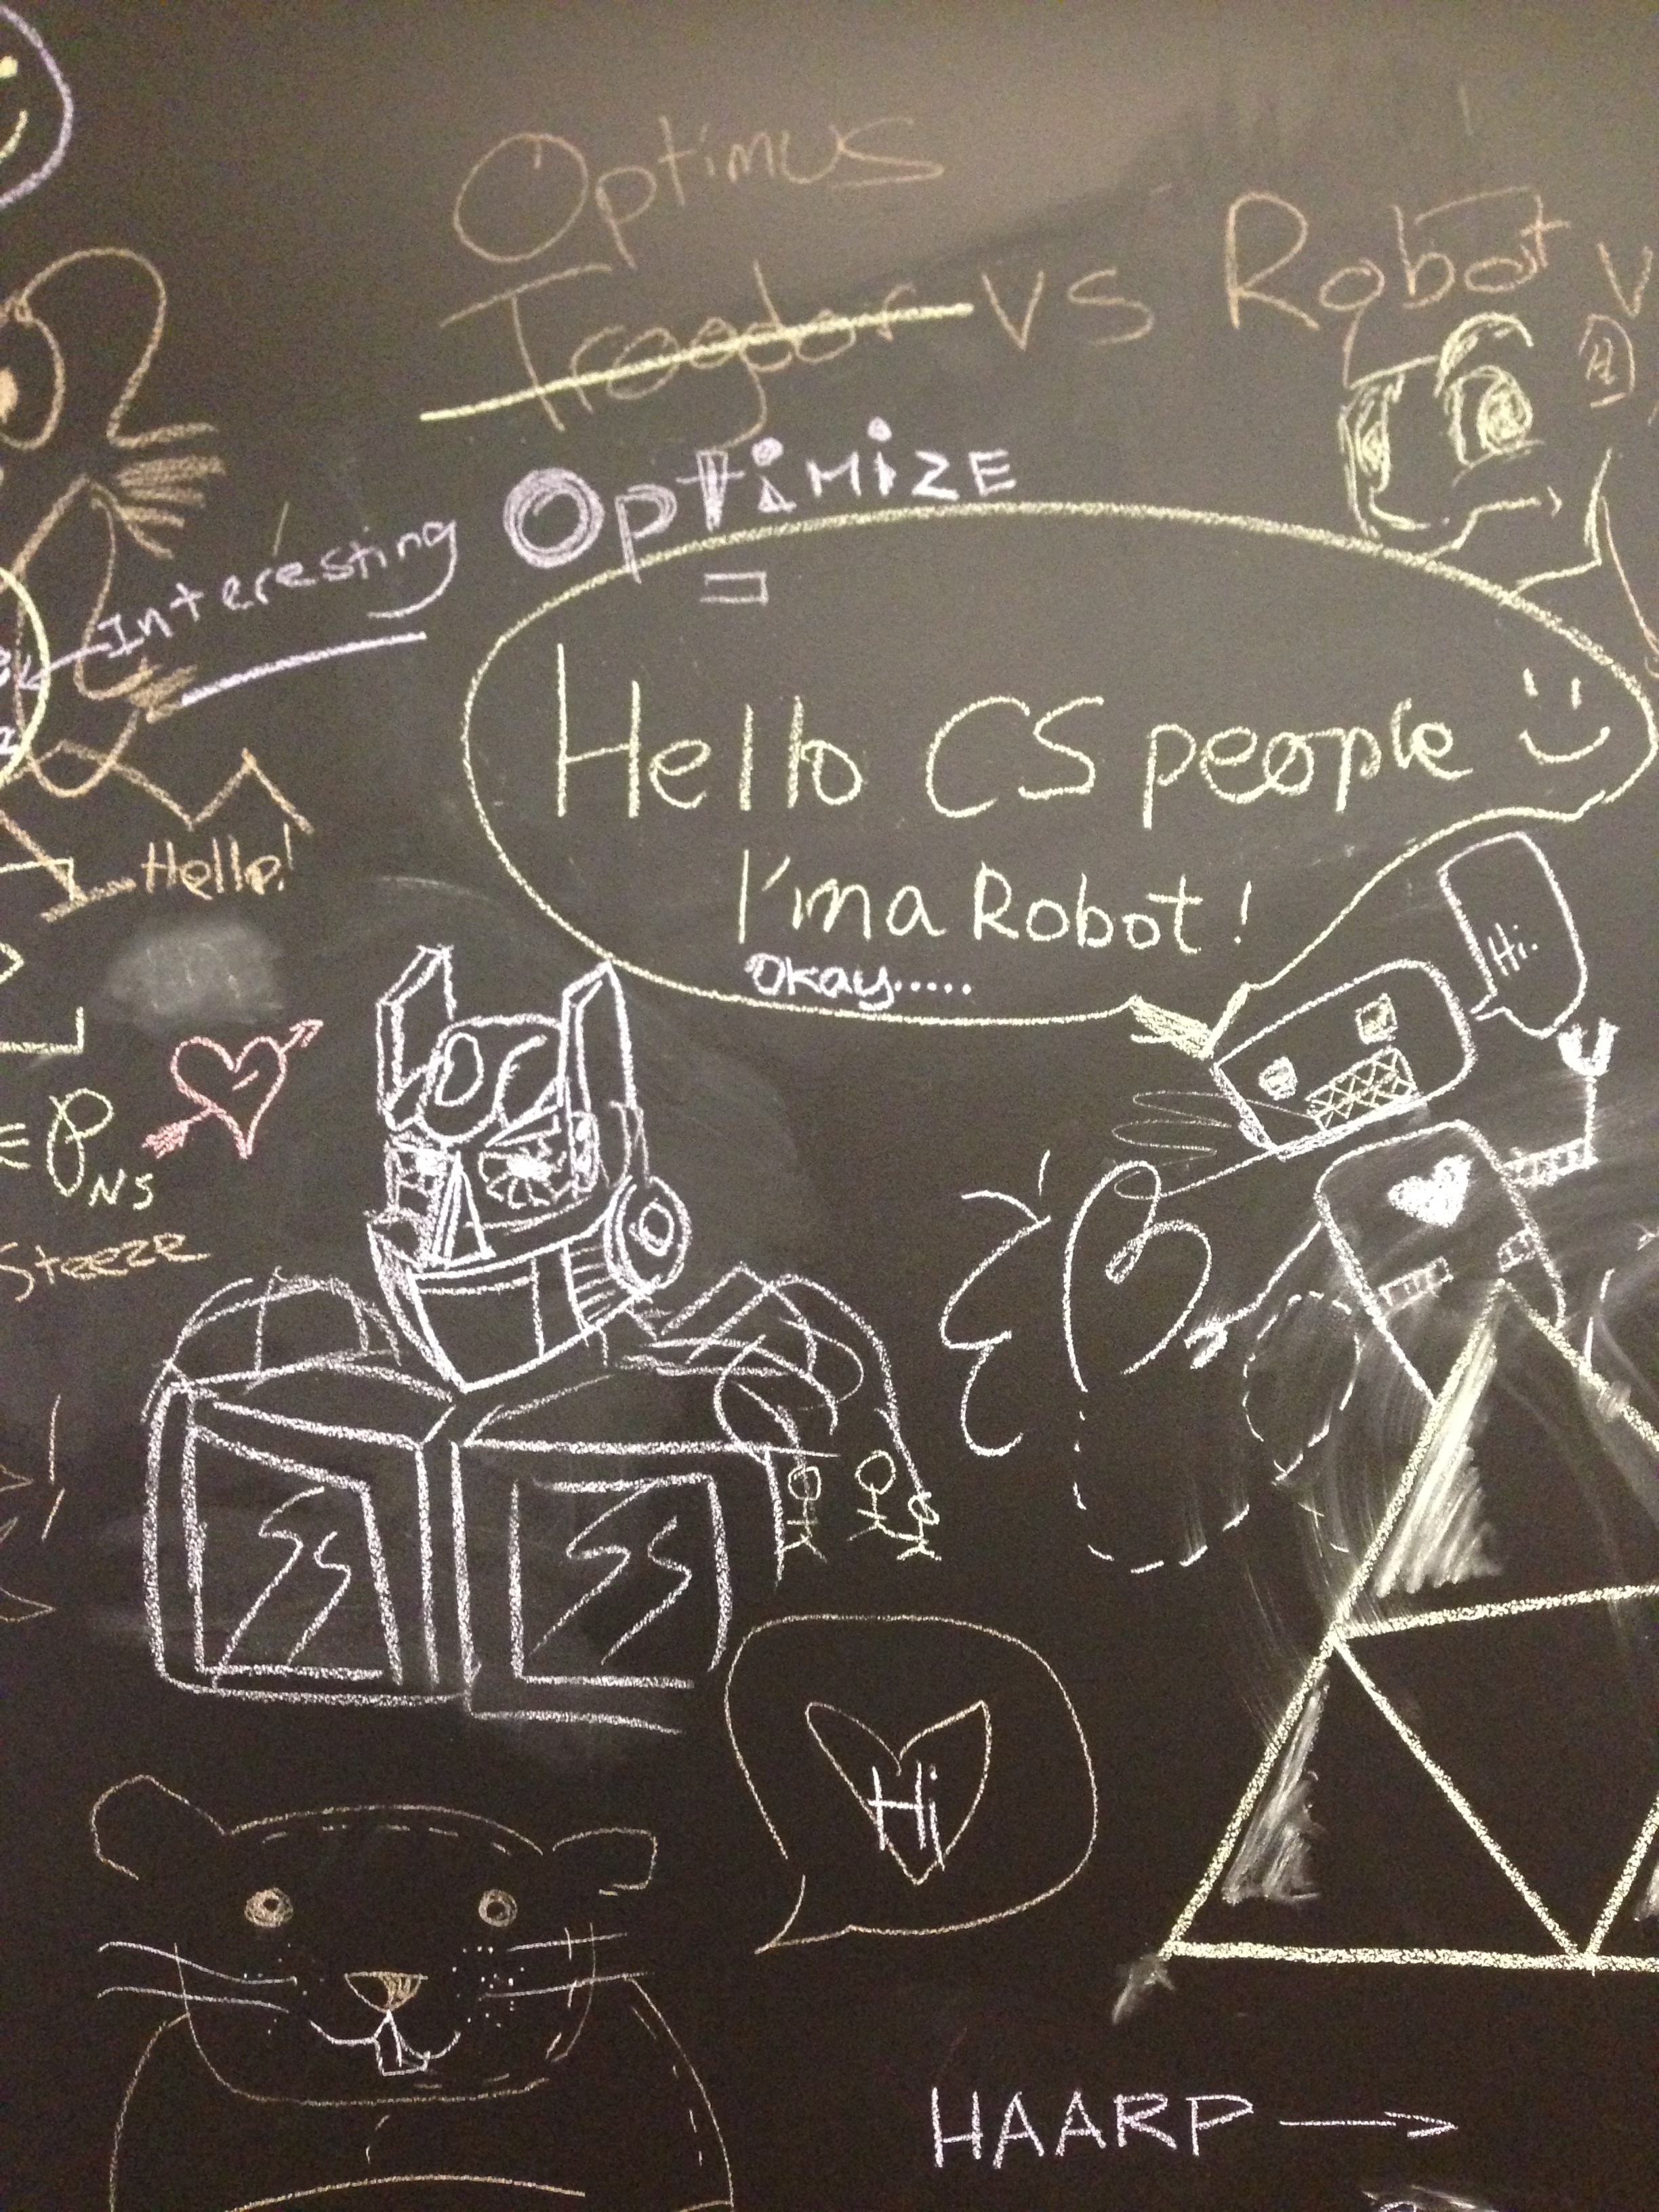 Optimus
Trogdor vs Robot v
OptiMiZE
Interesting
Hello CS people
I'm a Robot!
Okay.....
Hello!
Hi.
NS
Steeze
Hi
HAARP